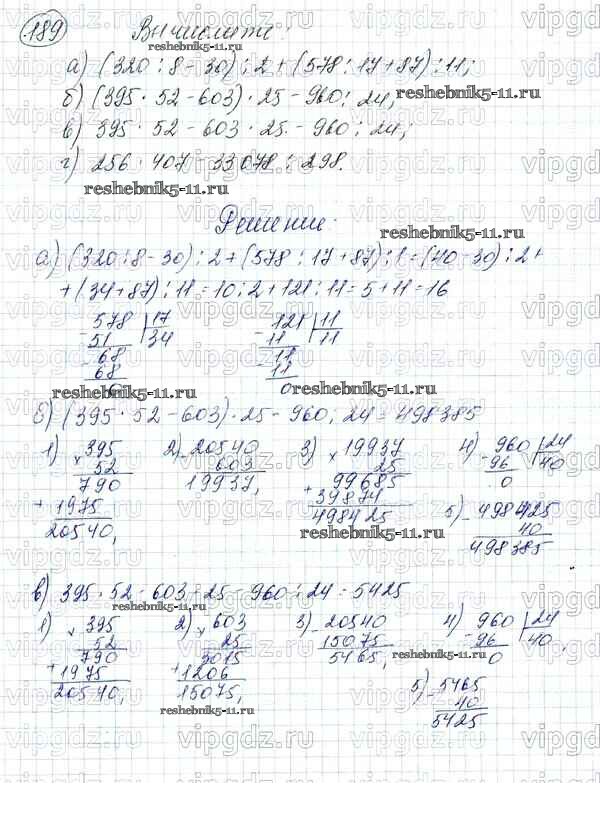 189 Вычислите:
а) (320 : 8 - 30) : 2 + (578 : 17 + 87) : 11;
б) (395 · 52 - 603) · 25 - 960 : 24;
в) 395 · 52 - 603 · 25 - 960 : 24;
г) 256 · 407 - 33078 : 298.
Решение:
а) (320 : 8 - 30) : 2 + (578 : 17 + 87) : 1 = (40 - 30) : 2 +
+ (34 + 87) : 11 = 10 : 2 + 121 : 11 = 5 + 11 = 16
578 | 17   121 | 11
- 51   34   - 11   11
- 68   - 11
68   11
0   0
б) (395 · 52 - 603) · 25 - 960 : 24 = 498385
1) × 395   2) - 20540   3) × 19937   4) - 960 | 24
52   603   25   96   40
790   19937,   + 99685   0
+ 1975   39874   5) - 498425
20540,   498425   40
498385
в) 395 · 52 - 603 · 25 - 960 : 24 = 5425
1) × 395   2) × 603   3) - 20540   4) - 960 | 24
52   25   15075   96   40,
790   3015   5465,   0
+ 1975   + 1206   5) - 5465
20540,   15075,   40
5425
reshebnik5-11.ru
reshebnik5-11.ru
reshebnik5-11.ru
reshebnik5-11.ru
reshebnik5-11.ru
reshebnik5-11.ru
reshebnik5-11.ru
reshebnik5-11.ru
reshebnik5-11.ru
vipgdz.ru